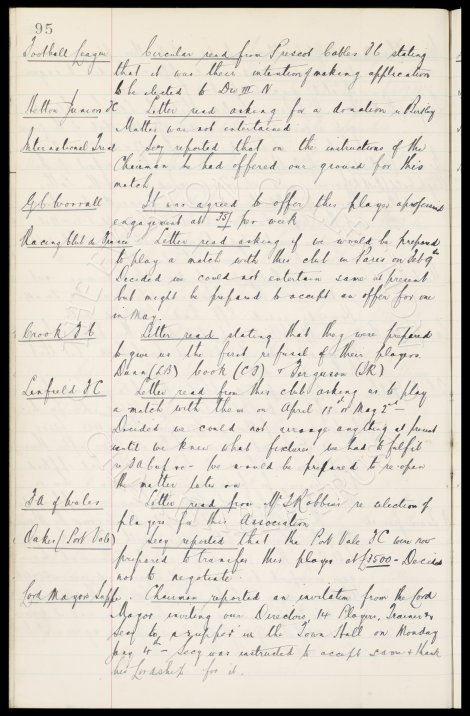 95
Football League Circular read from Prescot Cables FC stating
that it was their intention of making application
to be elected to Div III N
Hetton Junior FC Letter read asking for a donation
Matter was not entertained
International Trial Secy reported that on the instructions of the
Chairman he had offered our ground for this
match
G.C. Worrall It was agreed to offer this player a professional
engagement at 35/ per week
Racing Club de France Letter read asking if we would be prepared
to play a match with this club in Paris on Feb 9th
Decided we could not entertain same at present
but might be prepared to accept an offer for one
in May.
Crook FC Letter read stating that they were prepared
to give us the first refusal of their players
Dunn (LB) Cook (CF) & Ferguson (IR)
Linfield FC Letter read from this club asking us to play
a match with them on April 13th or May 2nd —
Decided we could not arrange anything at present
until we knew what fixtures we had to fulfil
re FA Cup &c — We would be prepared to re-open
the matter later on
FA of Wales Letter read from Mr T Robbins re selection of
players for this Association
Oakes (Port Vale) Secy reported that the Port Vale FC were now
prepared to transfer this player at £3500 — Decided
not to negotiate.
Lord Mayors Supper. Chairman reported an invitation from the Lord
Mayor inviting our Directors, 14 Players, Trainer &
Secy to a supper in the Town Hall on Monday
4th — Secy was instructed to accept same & thank
his Lordship for it.